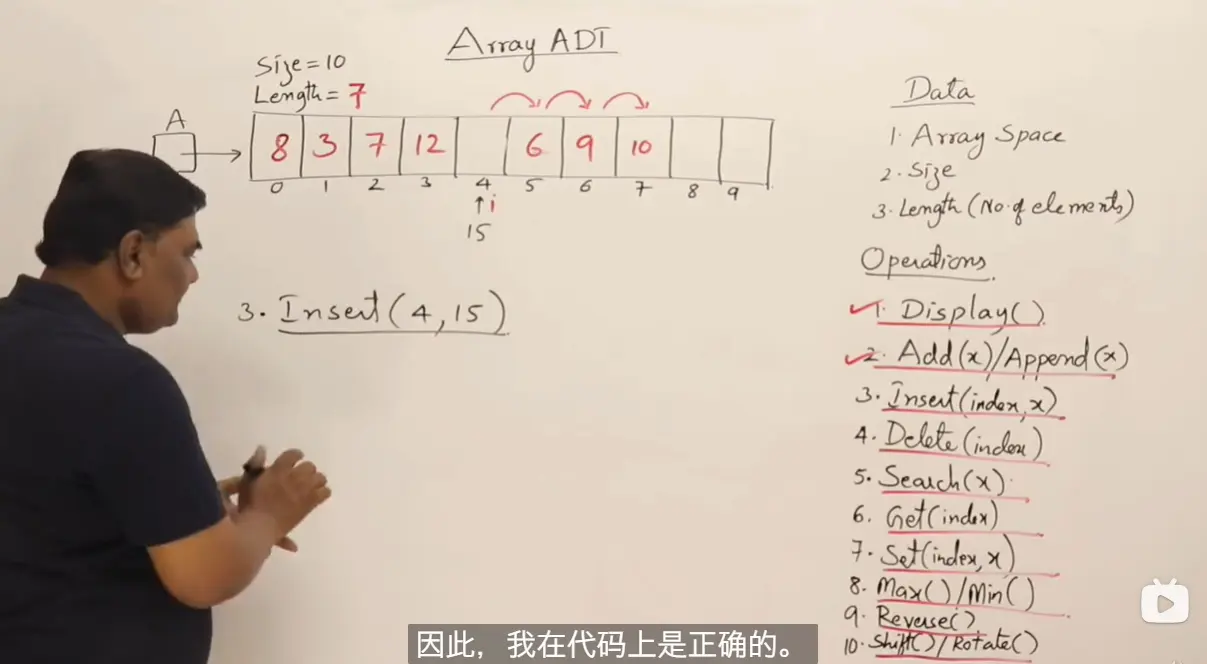 Array ADT
Size = 10
Length = 7
A
8 3 7 12 6 9 10
0 1 2 3 4 5 6 7 8 9
↑i
15
3. Insert(4,15)
Data
1. Array Space
2. Size
3. Length (No. of elements)
Operations
1. Display()
2. Add(x)/Append(x)
3. Insert(index, x)
4. Delete(index)
5. Search(x)
6. Get(index)
7. Set(index, x)
8. Max()/Min()
9. Reverse()
10. Shift()/Rotate()
因此，我在代码上是正确的。